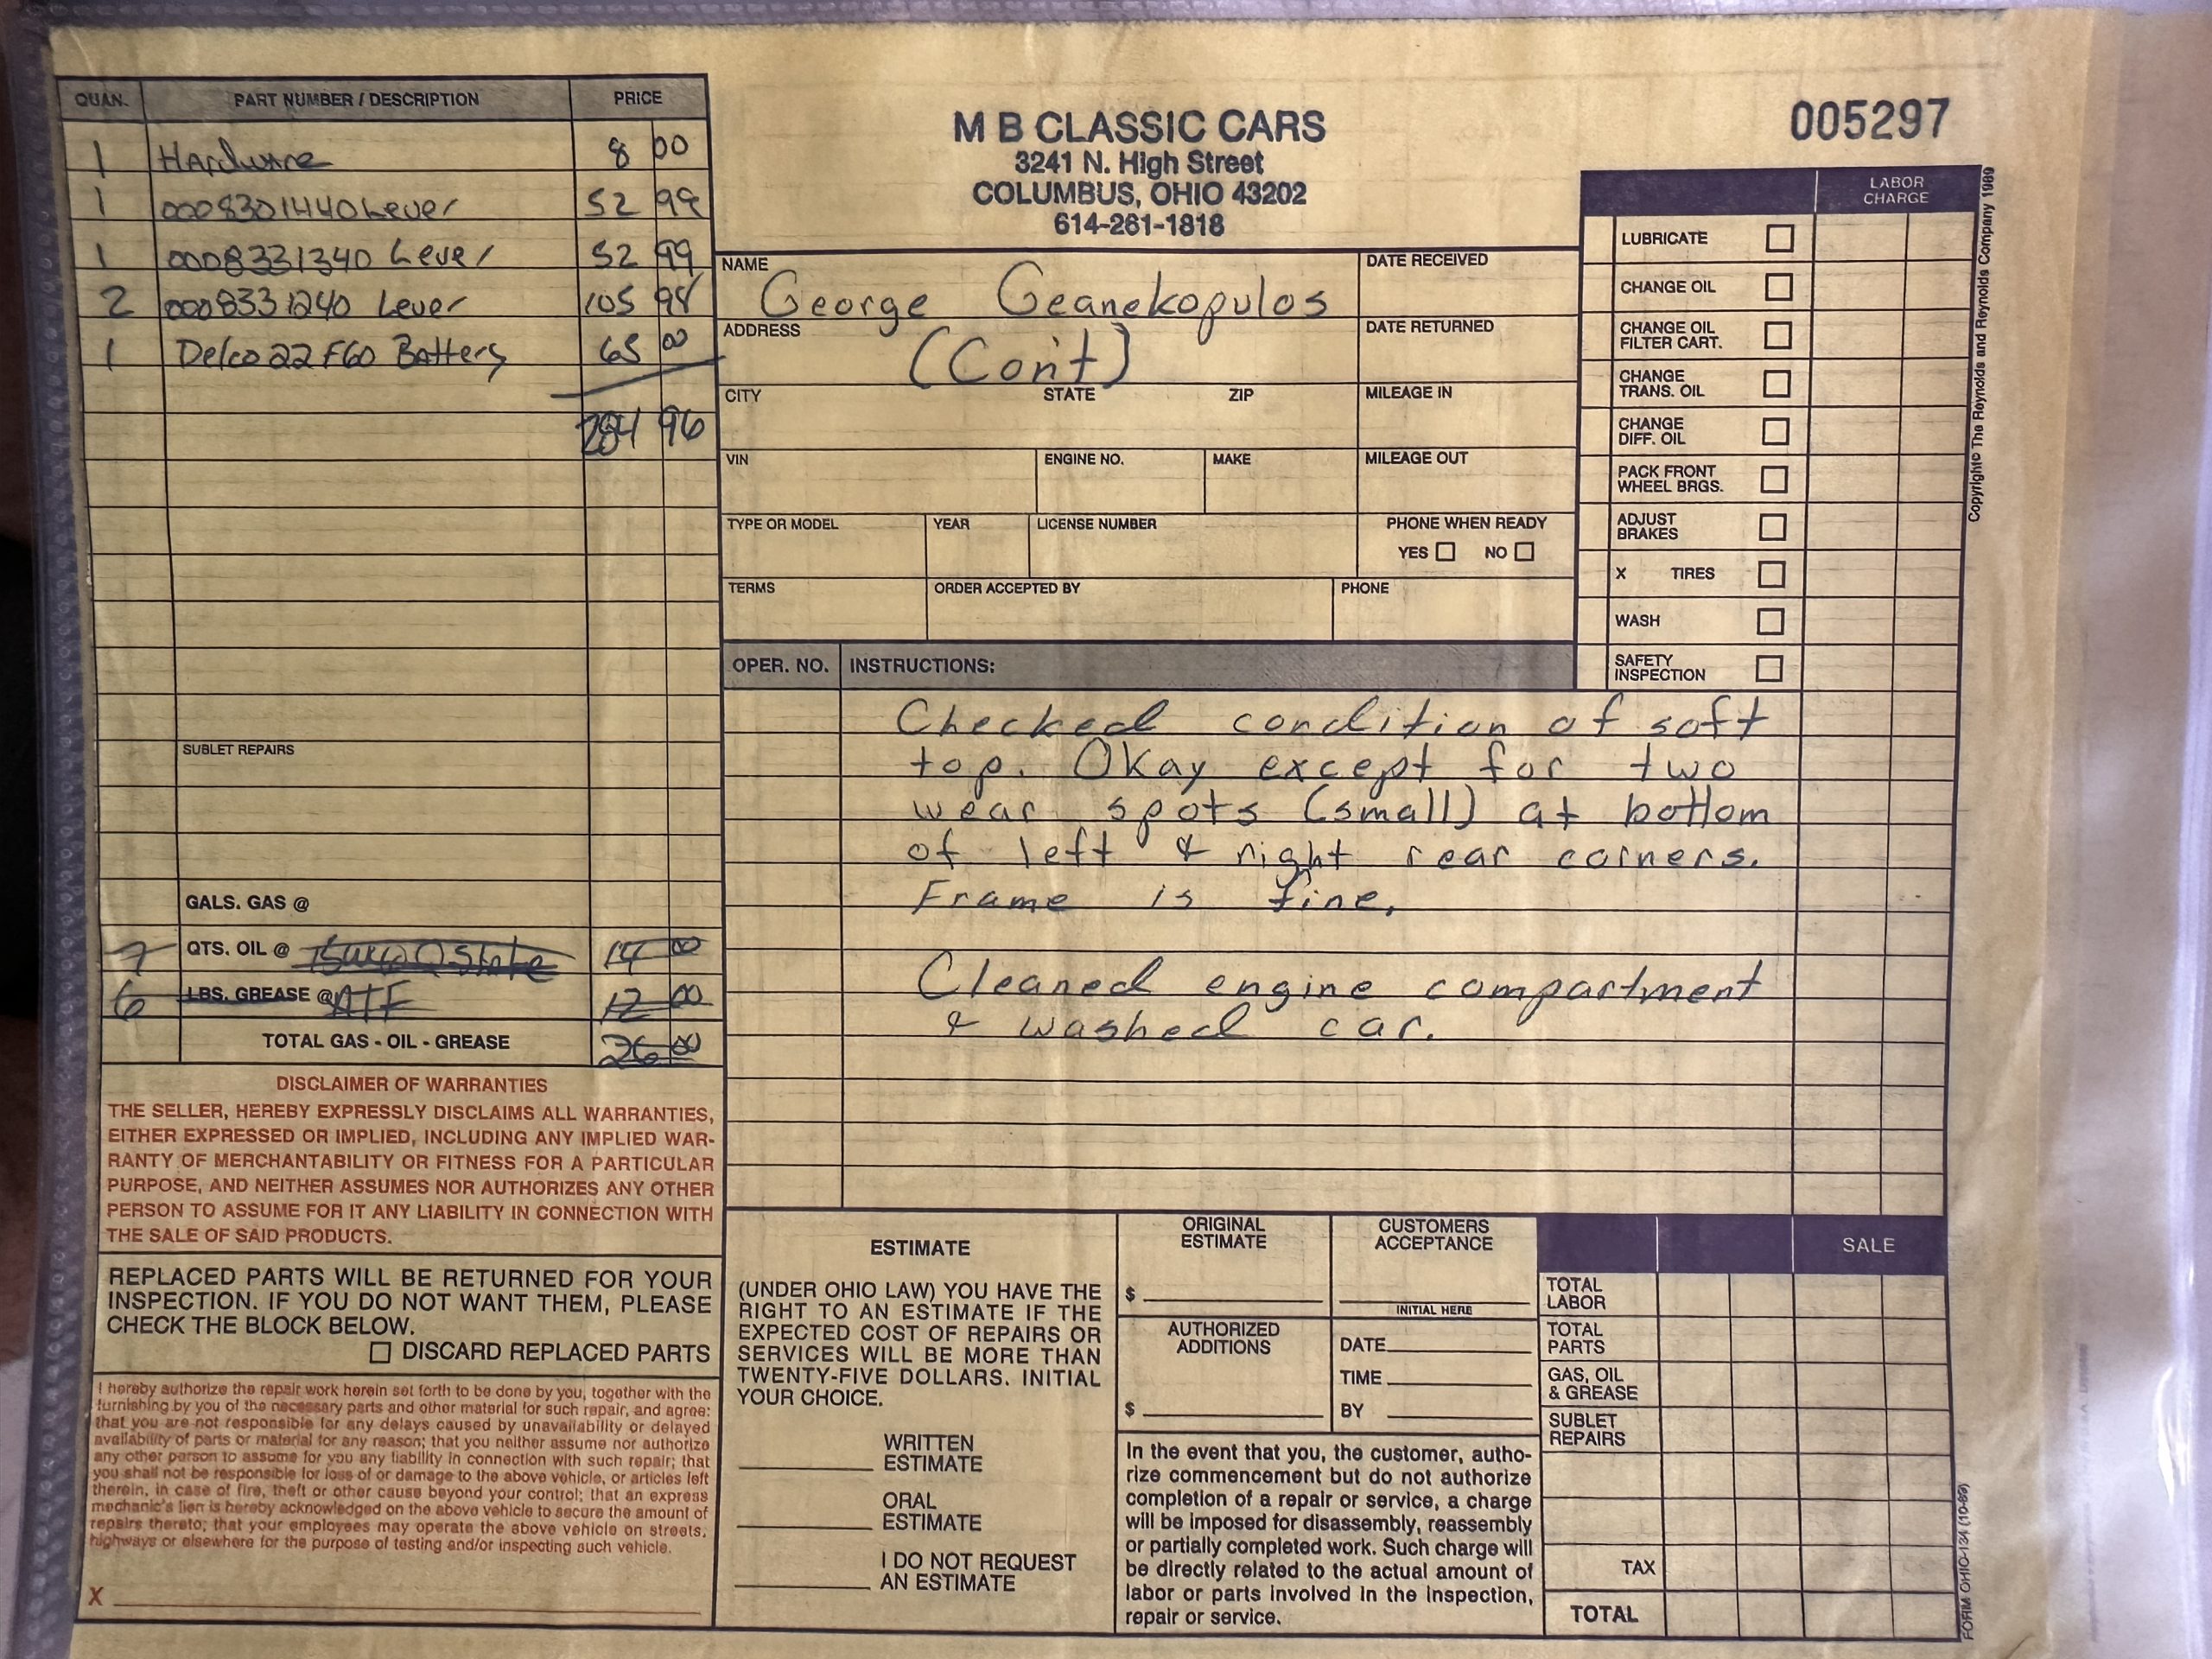 QUAN. PART NUMBER / DESCRIPTION PRICE
1 Hardware 8 00
1 0008301440 Lever 52 99
1 0008331340 Lever 52 99
2 0008331240 Lever 105 98
1 Delco 22F60 Battery 65 00
284 96
SUBLET REPAIRS
GALS. GAS @
7 QTS. OIL @ 14 00
6 LBS. GREASE @ ATF 12 00
TOTAL GAS - OIL - GREASE 26 00
DISCLAIMER OF WARRANTIES
THE SELLER, HEREBY EXPRESSLY DISCLAIMS ALL WARRANTIES,
EITHER EXPRESSED OR IMPLIED, INCLUDING ANY IMPLIED WAR-
RANTY OF MERCHANTABILITY OR FITNESS FOR A PARTICULAR
PURPOSE, AND NEITHER ASSUMES NOR AUTHORIZES ANY OTHER
PERSON TO ASSUME FOR IT ANY LIABILITY IN CONNECTION WITH
THE SALE OF SAID PRODUCTS.
REPLACED PARTS WILL BE RETURNED FOR YOUR
INSPECTION. IF YOU DO NOT WANT THEM, PLEASE
CHECK THE BLOCK BELOW.
DISCARD REPLACED PARTS
I hereby authorize the repair work herein set forth to be done by you, together with the
furnishing by you of the necessary parts and other material for such repair, and agree:
that you are not responsible for any delays caused by unavailability or delayed
availability of parts or material for any reason; that you neither assume nor authorize
any other person to assume for you any liability in connection with such repair; that
you shall not be responsible for loss of or damage to the above vehicle, or articles left
therein, in case of fire, theft or other cause beyond your control; that an express
mechanic's lien is hereby acknowledged on the above vehicle to secure the amount of
repairs thereto; that your employees may operate the above vehicle on streets,
highways or elsewhere for the purpose of testing and/or inspecting such vehicle.
X
M B CLASSIC CARS
3241 N. High Street
COLUMBUS, OHIO 43202
614-261-1818
005297
NAME George Geanekopulos
DATE RECEIVED
ADDRESS (Con't)
DATE RETURNED
CITY STATE ZIP MILEAGE IN
VIN ENGINE NO. MAKE MILEAGE OUT
TYPE OR MODEL YEAR LICENSE NUMBER PHONE WHEN READY
YES NO
TERMS ORDER ACCEPTED BY PHONE
LABOR
CHARGE
LUBRICATE
CHANGE OIL
CHANGE OIL
FILTER CART.
CHANGE
TRANS. OIL
CHANGE
DIFF. OIL
PACK FRONT
WHEEL BRGS.
ADJUST
BRAKES
X TIRES
WASH
SAFETY
INSPECTION
Copyright© The Reynolds and Reynolds Company 1989
OPER. NO. INSTRUCTIONS:
Checked condition of soft
top. Okay except for two
wear spots (small) at bottom
of left & right rear corners.
Frame is fine.
Cleaned engine compartment
& washed car.
ESTIMATE
(UNDER OHIO LAW) YOU HAVE THE
RIGHT TO AN ESTIMATE IF THE
EXPECTED COST OF REPAIRS OR
SERVICES WILL BE MORE THAN
TWENTY-FIVE DOLLARS. INITIAL
YOUR CHOICE.
WRITTEN
ESTIMATE
ORAL
ESTIMATE
I DO NOT REQUEST
AN ESTIMATE
ORIGINAL
ESTIMATE
$
AUTHORIZED
ADDITIONS
$
CUSTOMERS
ACCEPTANCE
INITIAL HERE
DATE
TIME
BY
In the event that you, the customer, autho-
rize commencement but do not authorize
completion of a repair or service, a charge
will be imposed for disassembly, reassembly
or partially completed work. Such charge will
be directly related to the actual amount of
labor or parts involved in the inspection,
repair or service.
SALE
TOTAL
LABOR
TOTAL
PARTS
GAS, OIL
& GREASE
SUBLET
REPAIRS
TAX
TOTAL
FORM OHIO-134 (10-89)